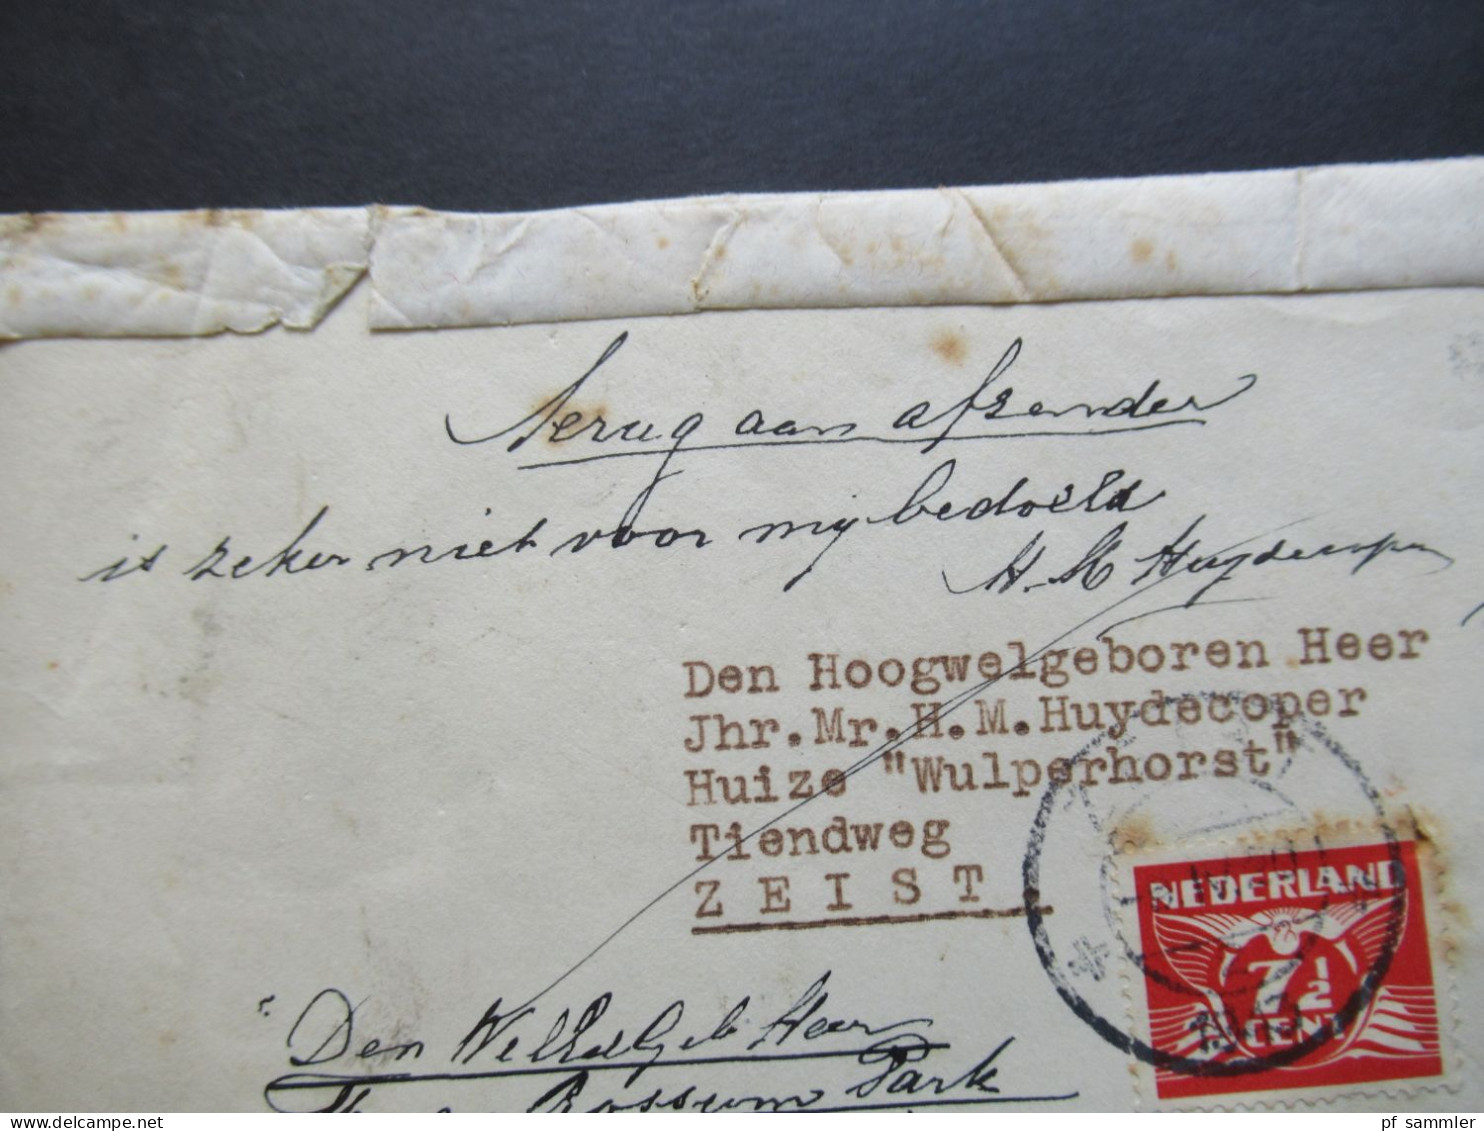 Terug aan afzender
is zeker niet voor my bedoeld
H. M Huydecoper
Den Hoogwelgeboren Heer
Jhr.Mr.H.M.Huydecoper
Huize "Wulperhorst"
Tiendweg
ZEIST
NEDERLAND
7½
CENT
Den WelEdelGeb Heer
Rossum Park
pf_sammler